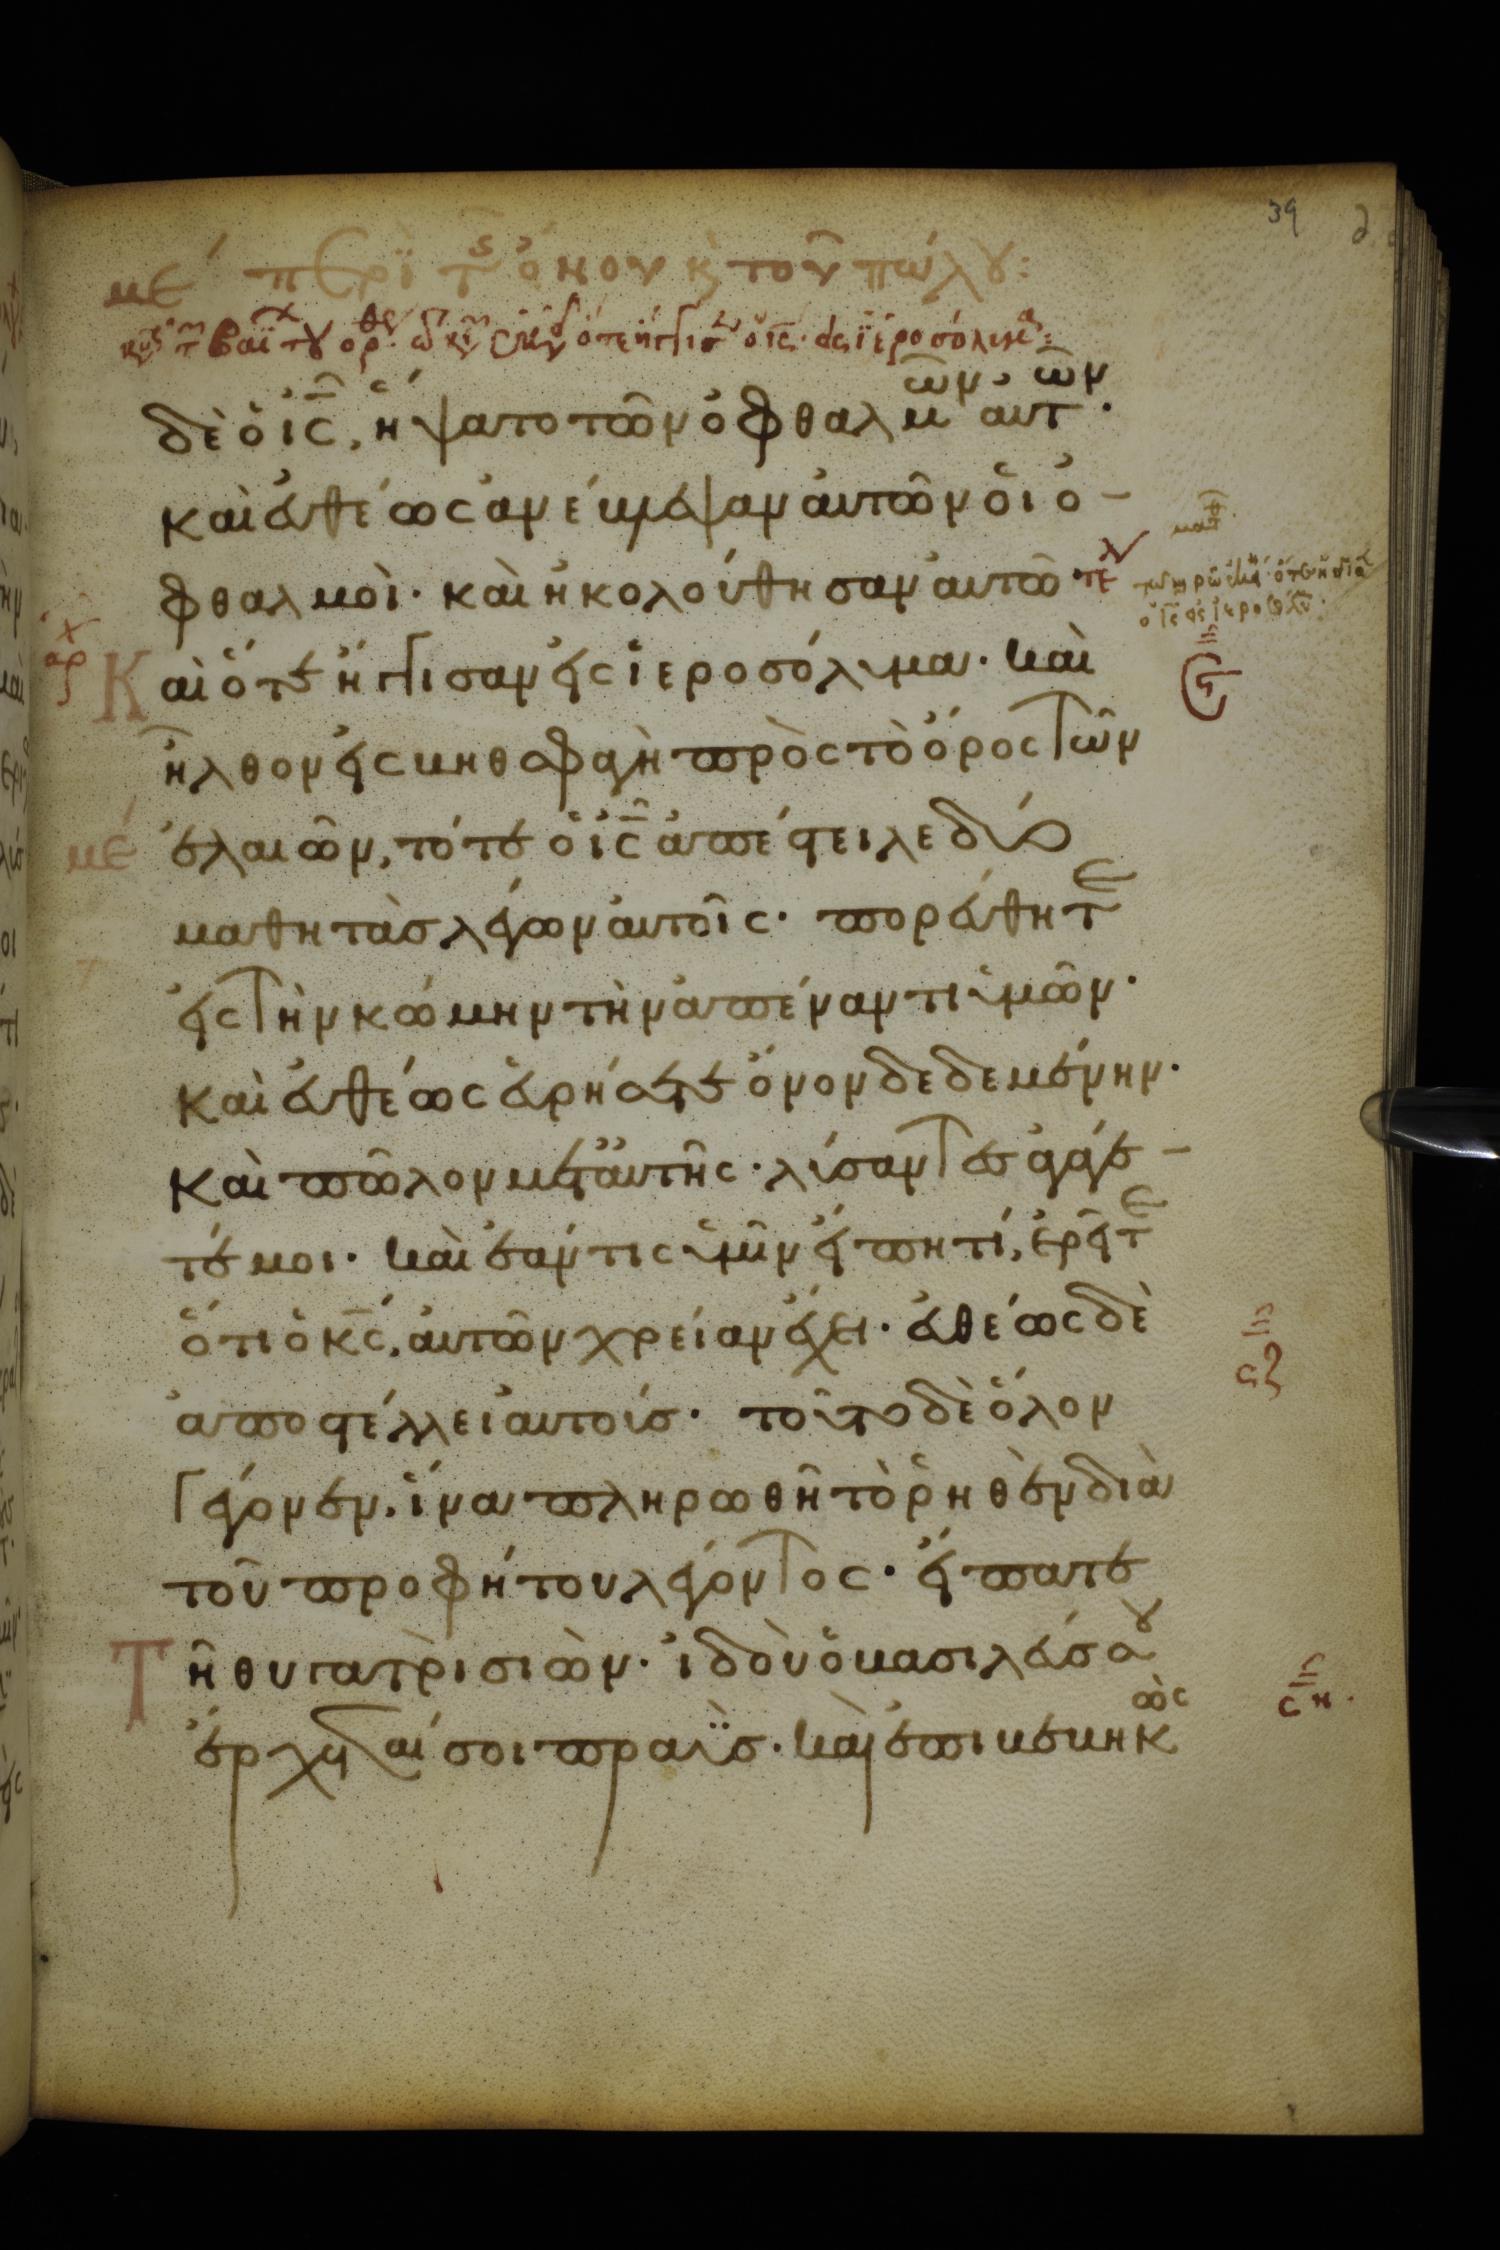 39
με΄ περὶ τῆς ὄνου κ̀ τοῦ πώλου:
δὲ ὁ ις̅, ἥψατο τῶν ὀφθαλμῶν αὐτῶν·
καὶ εὐθέως ἀνέβλεψαν αὐτῶν ὁι ὀ-
φθαλμοὶ· καὶ ἠκολούθησαν αὐτῶ· τε
Καὶ ὅτε ἤγγισαν εἰς ἱεροσόλυμα· καὶ
ἦλθον εἰς βηθσφαγὴ πρὸς τὸ ὄρος τῶν
με΄ ἐλαιῶν, τότε ὁ ις̅ ἀπέστειλε δύο
μαθητὰς λέγων αὐτοῖς· πορεύθητε
εἰς τὴν κώμην τὴν ἀπέναντι ὑμῶν·
καὶ εὐθέως εὑρήσετε ὄνον δεδεμένην·
καὶ πῶλον μετ' αὐτῆς· λύσαντες ἀγάγε-
τέ μοι· καὶ ἐάν τις ὑμῖν εἴπη τί, ἐρεῖτε
ὅτι ὁ κς̅, αὐτῶν χρείαν ἔχει· εὐθέως δὲ
ἀποστέλλει αὐτούς· τοῦτο δὲ ὅλον
γέγονεν, ἵνα πληρωθῆ τὸ ῥηθὲν διὰ
τοῦ προφήτου λέγοντος· εἴπατε
Τῆ θυγατρὶ σιὼν· ἰδοὺ ὁ βασιλεύς σου
ἔρχεταί σοι πραΰς· καὶ ἐπιβεβηκὼς